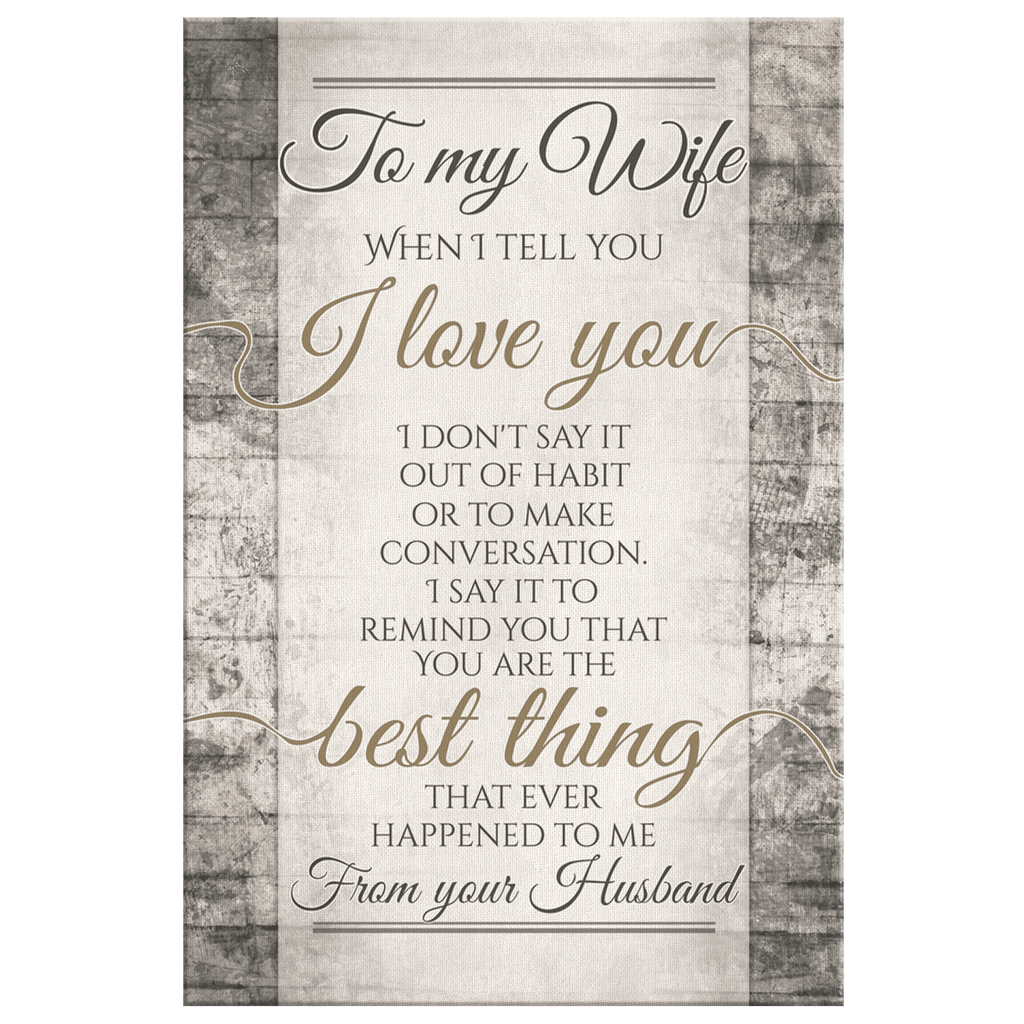 To my Wife
WHEN I TELL YOU
I love you
I DON'T SAY IT
OUT OF HABIT
OR TO MAKE
CONVERSATION.
I SAY IT TO
REMIND YOU THAT
YOU ARE THE
best thing
THAT EVER
HAPPENED TO ME
From your Husband